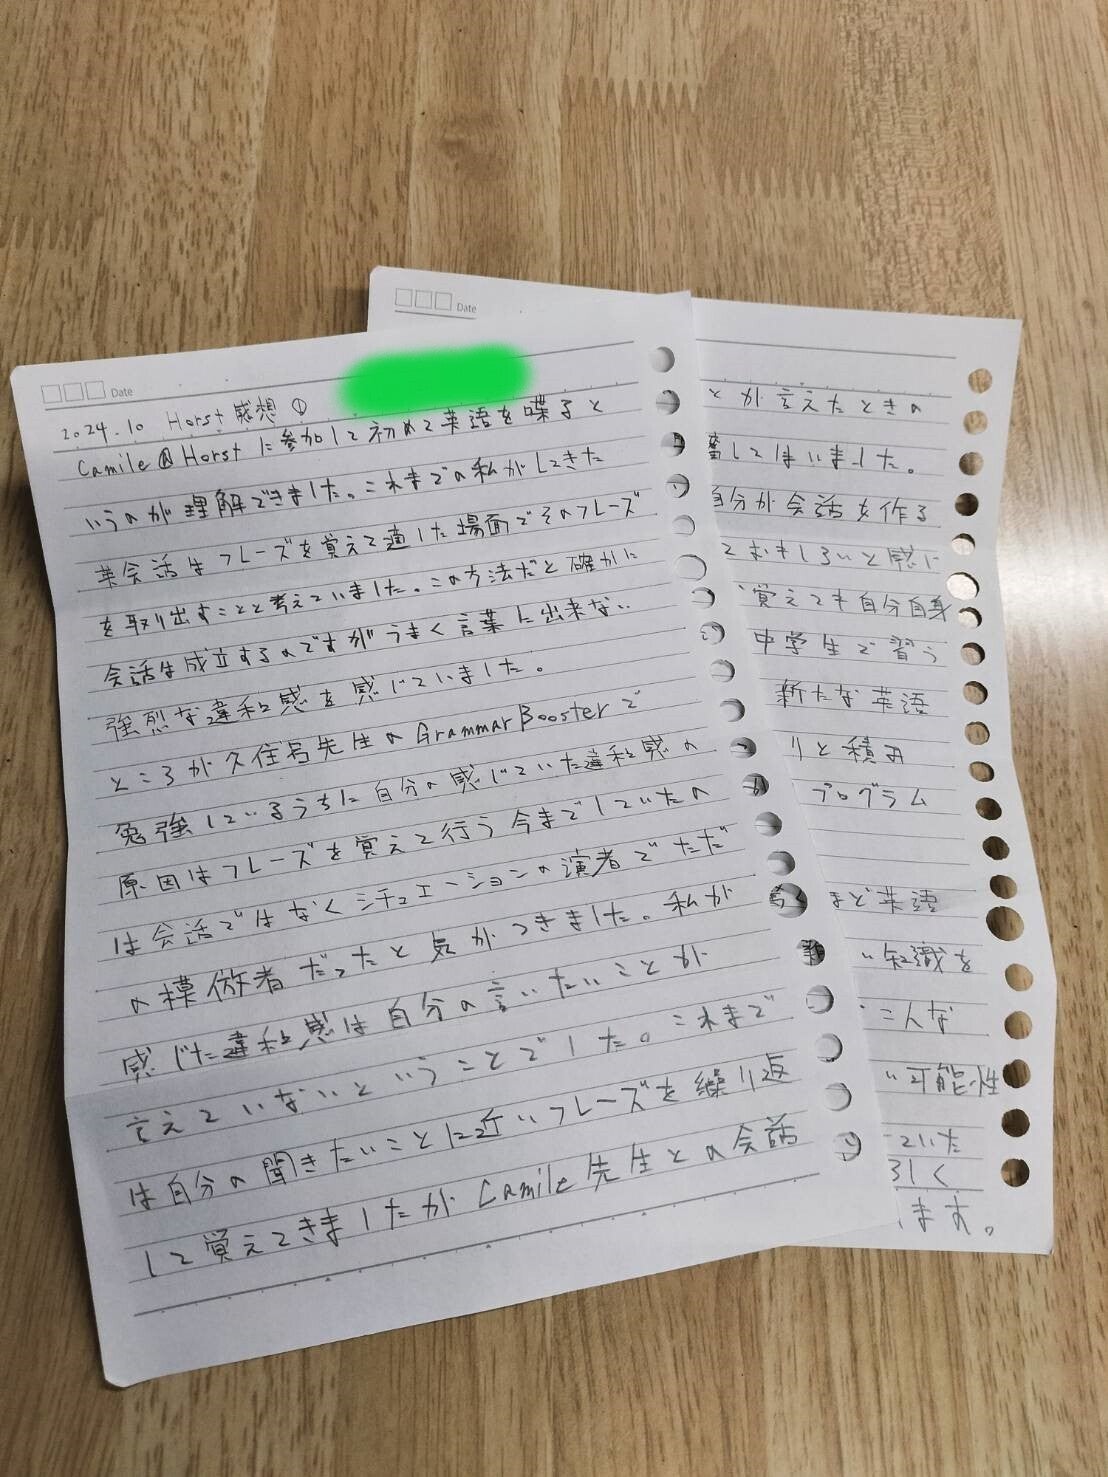 Date
2024.10 Horst 感想 ①
Camile@Horst に参加して初めて英語を喋ると
いうのが理解できました。これまでの私がしてきた
英会話はフレーズを覚えて適した場面でそのフレーズ
を取り出すことと考えていました。この方法だと確かに
会話は成立するのですがうまく言葉に出来ない
強烈な違和感を感じていました。
ところが久住呂先生のGrammarBoosterで
勉強しているうちに自分の感じていた違和感の
原因はフレーズを覚えて行う今までしていたの
は会話ではなくシチュエーションの演者でただ
の模倣者だったと気がつきました。私が
感じた違和感は自分の言いたいことが
言えていないということでした。これまで
は自分の聞きたいことに近いフレーズを繰り返
して覚えてきましたがCamile先生との会話
Date
とが言えたときの
してはいました。
自分が会話を作る
ておもしろいと感に
覚えても自分自身
中学生で習う
新たな英語
りと積み
プログラム
まど英語
い知識を
こんな
い可能性
ていた
しく
ます。